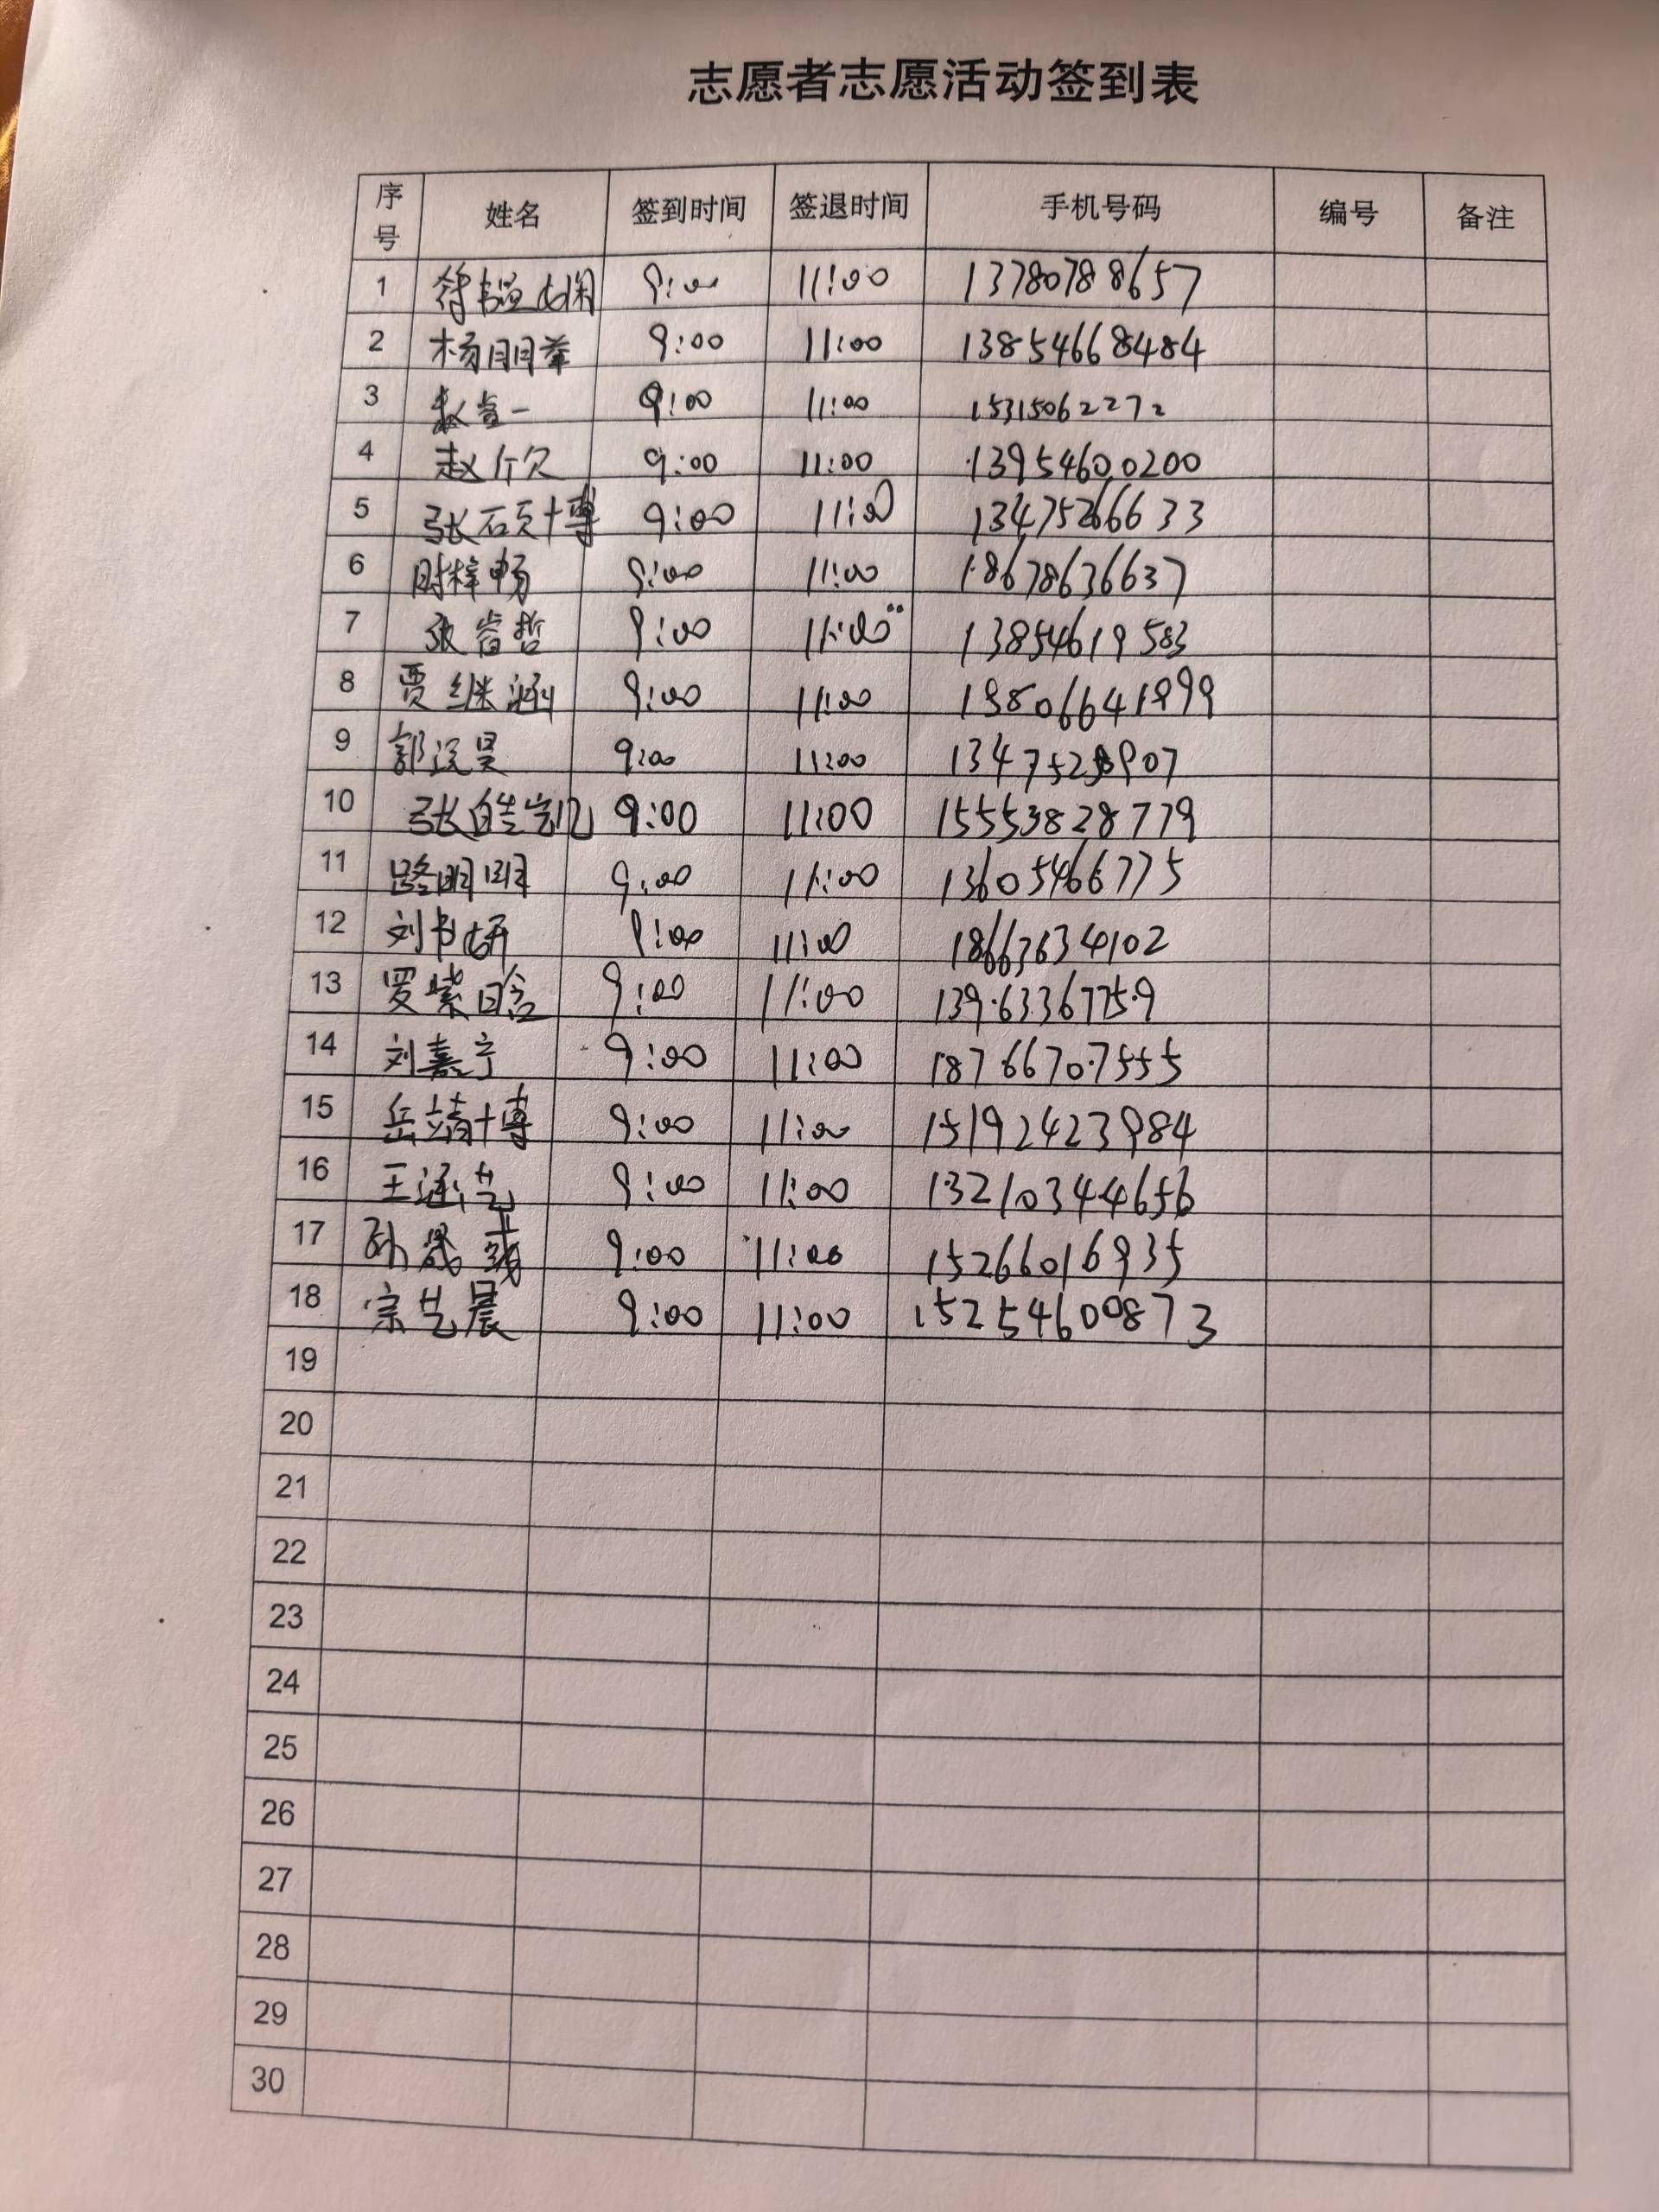 志愿者志愿活动签到表
序号 姓名 签到时间 签退时间 手机号码 编号 备注
1 9:00 11:00 13780788657
2 杨朋举 9:00 11:00 13854668484
3 一 9:00 11:00 15315062272
4 赵 9:00 11:00 13954600200
5 张硕博 9:00 11:00 13475266633
6 时梓畅 9:00 11:00 18678636637
7 张睿哲 9:00 11:00 13854619583
8 贾继涵 9:00 11:00 13806641999
9 郭 昊 9:00 11:00
10 张皓凯 9:00 11:00 15553828779
11 路明玥 9:00 11:00 13605466775
12 刘书妍 9:00 11:00 18663634102
13 罗紫晗 9:00 11:00 13963367759
14 刘嘉宁 9:00 11:00 18766707555
15 岳靖博 9:00 11:00 15192423984
16 王涵艺 9:00 11:00 13210344656
17 孙晟 9:00 11:00 15266016935
18 宗艺晨 9:00 11:00 15254600873
19
20
21
22
23
24
25
26
27
28
29
30